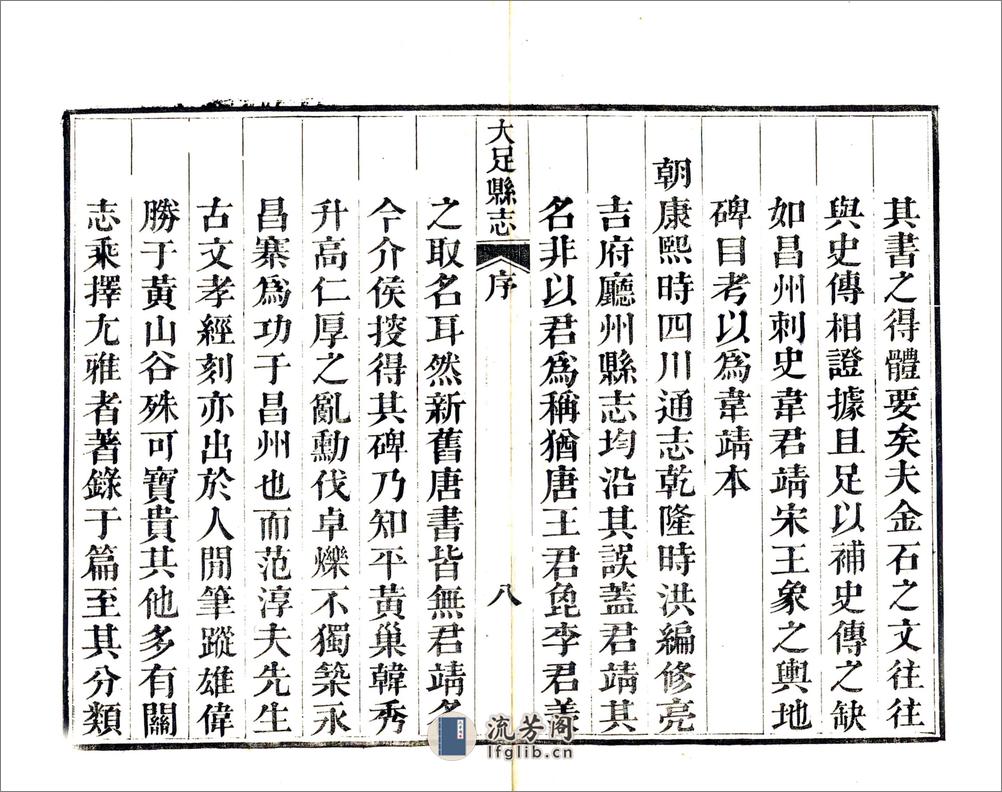 其書之得體要矣夫金石之文往往
與史傳相證據且足以補史傳之缺
如昌州刺史韋君靖宋王象之輿地
碑目考以爲韋靖本
朝康熙時四川通志乾隆時洪編修亮
吉府廳州縣志均沿其誤蓋君靖其
名非以君爲稱猶唐王君㚟李君羨
大足縣志 序 八
之取名耳然新舊唐書皆無君靖名
今介侯挍得其碑乃知平黃巢韓秀
升高仁厚之亂勳伐卓爍不獨築永
昌寨爲功于昌州也而范淳夫先生
古文孝經刻亦出於人閒筆蹤雄偉
勝于黃山谷殊可寶貴其他多有關
志乘擇尤雅者著錄于篇至其分類
流芳阁
lfglib.cn